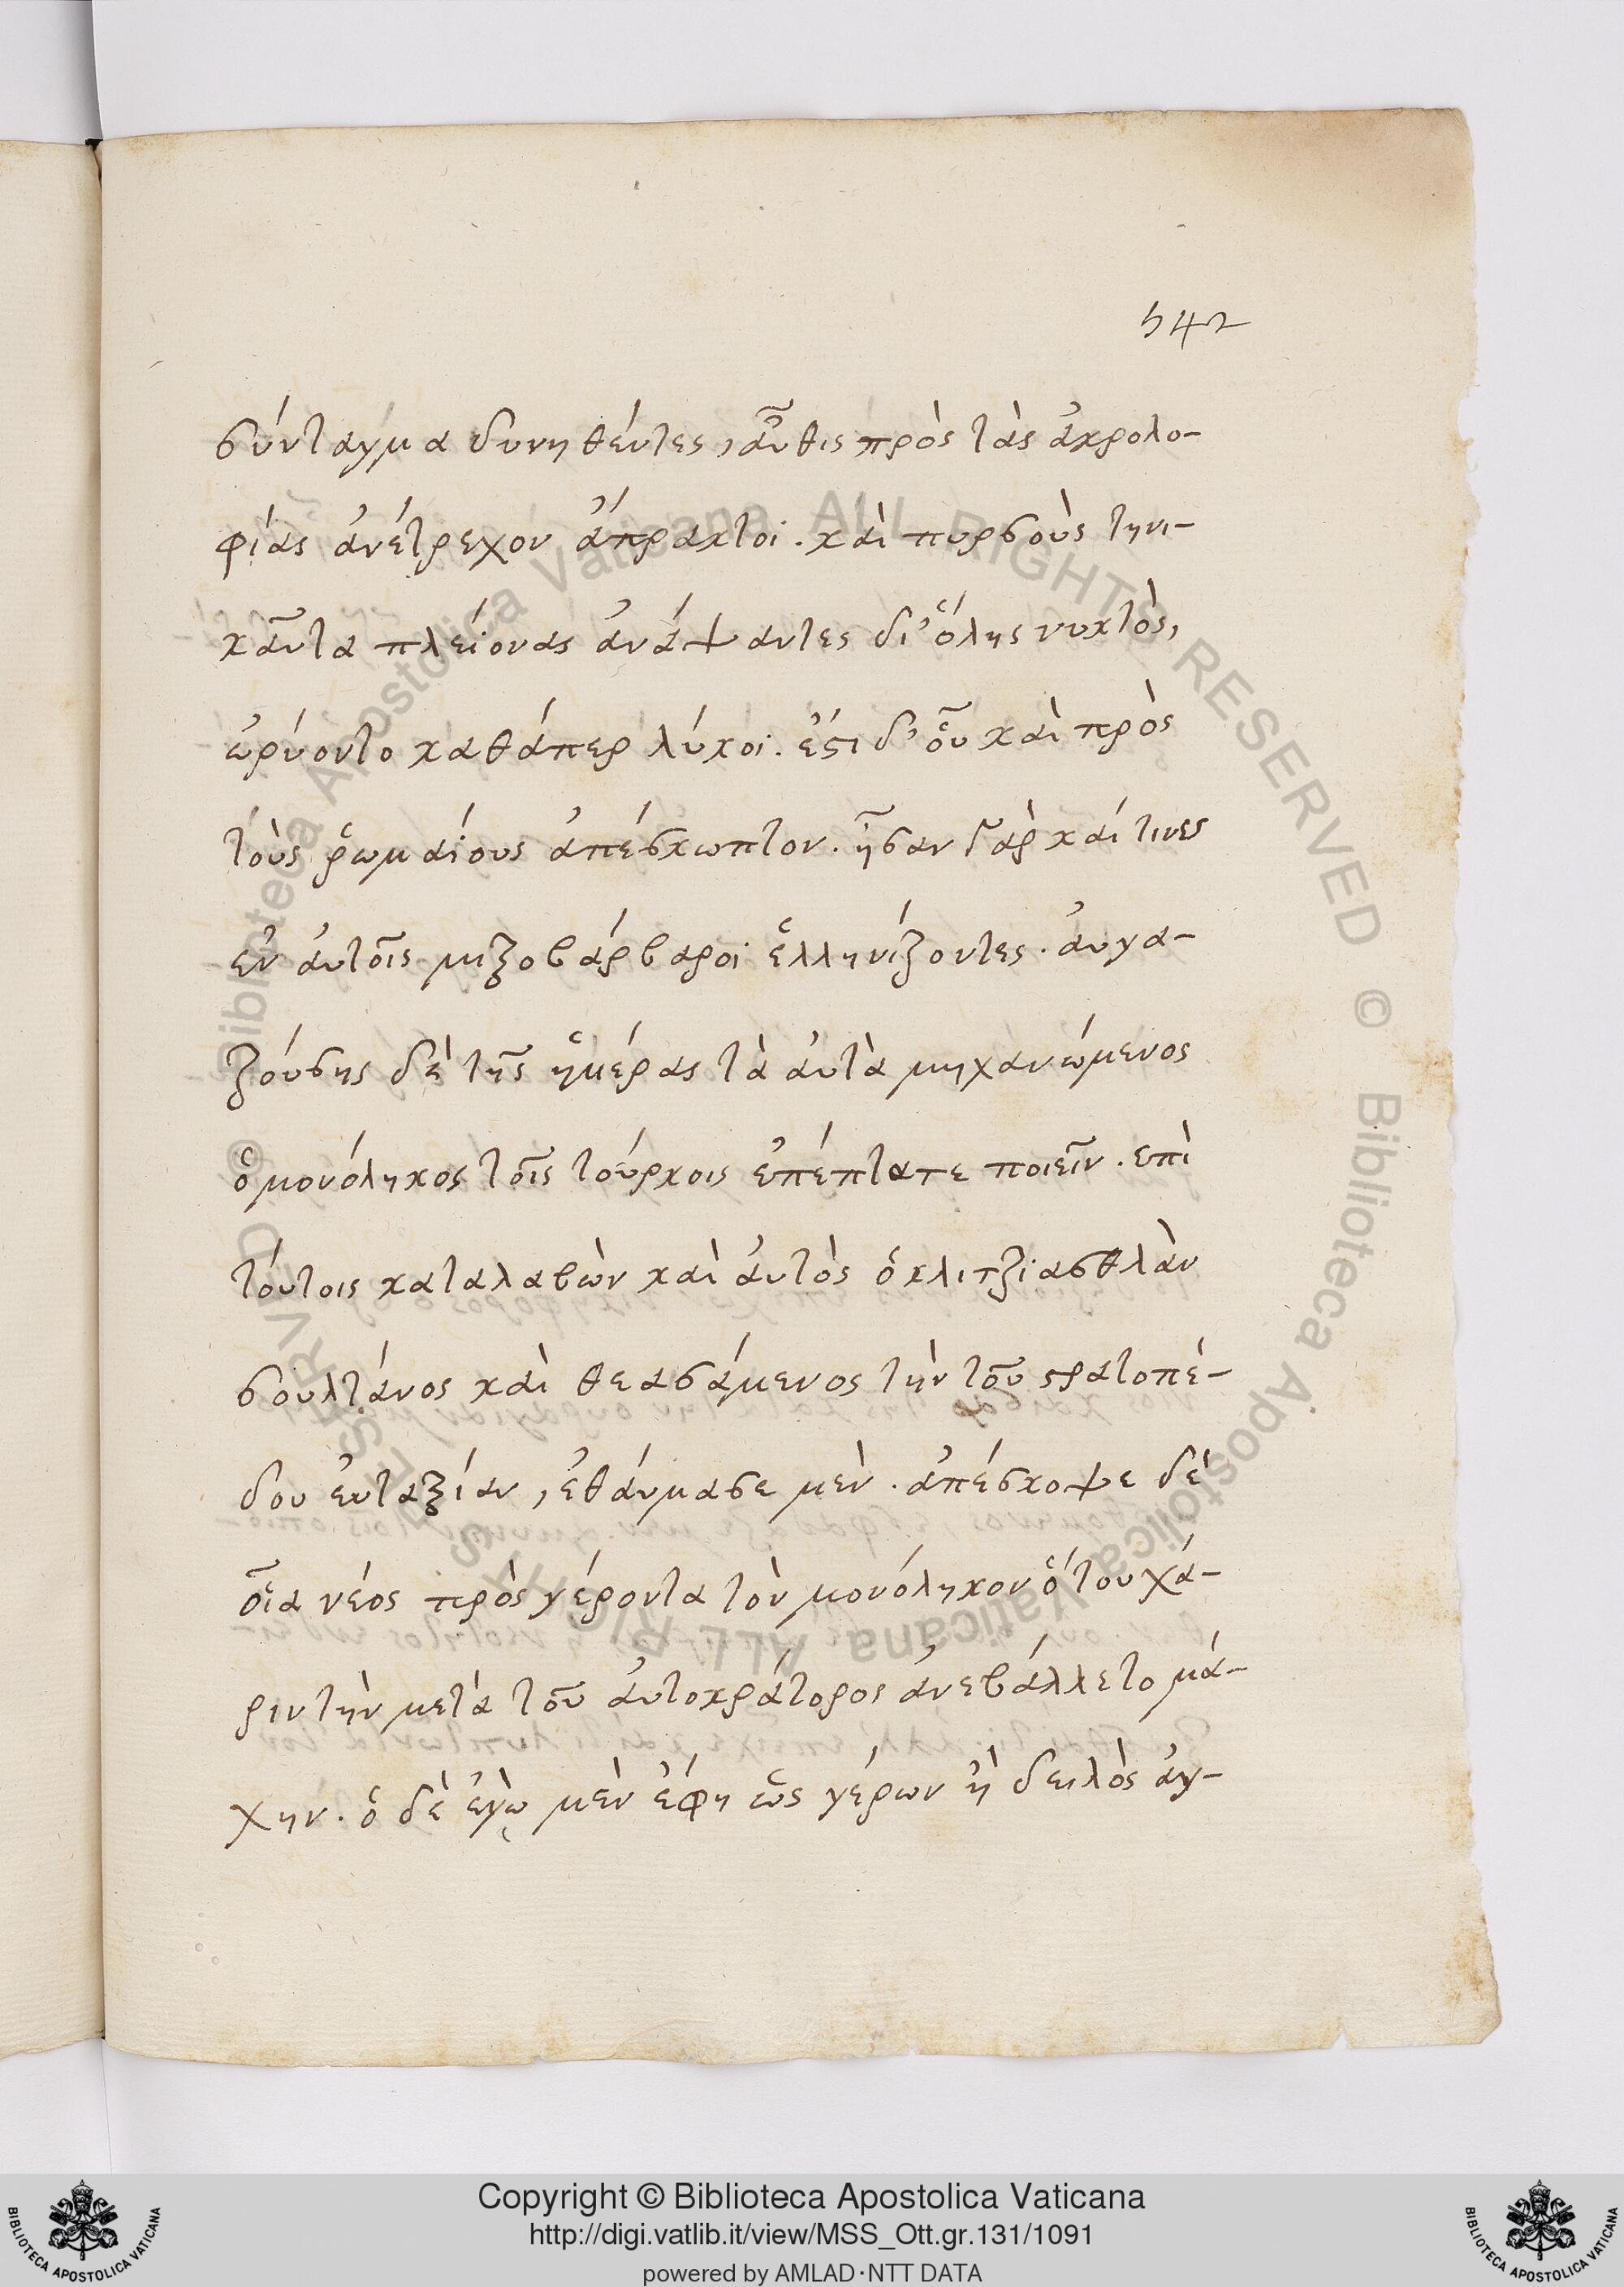 542
σύνταγμα δυνηθέντες, αὖθις πρὸς τὰς ἀκρολο-
φίας ἀνέτρεχον ἄπρακτοι. καὶ πυρσοὺς τηνι-
καῦτα πλείονας ἀνάψαντες δι' ὅλης νυκτὸς,
ὠρύοντο καθάπερ λύκοι. ἔστι δ' οὗ καὶ πρὸς
τοὺς ῥωμαίους ἀπέσκωπτον. ἦσαν γὰρ καί τινες
ἐν αὐτοῖς μιξοβάρβαροι ἑλληνίζοντες. αὐγα-
ζούσης δὲ τῆς ἡμέρας τὰ αὐτὰ μηχανώμενος
ὁ μονόλυκος τοῖς τούρκοις ἐπέπτατε ποιεῖν. ἐπὶ
τούτοις καταλαβὼν καὶ αὐτὸς ὁ κλιτζιασθλὰν
σουλτάνος καὶ θεασάμενος τὴν τοῦ στρατοπέ-
δου εὐταξίαν, ἐθαύμασε μὲν. ἀπέσκοψε δὲ
οἷα νέος πρὸς γέροντα τὸν μονόλυκον ὅτου χά-
ριν τὴν μετὰ τοῦ αὐτοκράτορος ἀνεβάλλετο μά-
χην. ὁ δὲ ἐγὼ μὲν ἔφη ὡς γέρων ἢ δειλὸς ἀγ-
Copyright © Biblioteca Apostolica Vaticana
http://digi.vatlib.it/view/MSS_Ott.gr.131/1091
powered by AMLAD·NTT DATA
BIBLIOTECA APOSTOLICA VATICANA
BIBLIOTECA APOSTOLICA VATICANA
© Biblioteca Apostolica Vaticana ALL RIGHTS RESERVED © Biblioteca Apostolica Vaticana ALL RIGHTS RESERVED